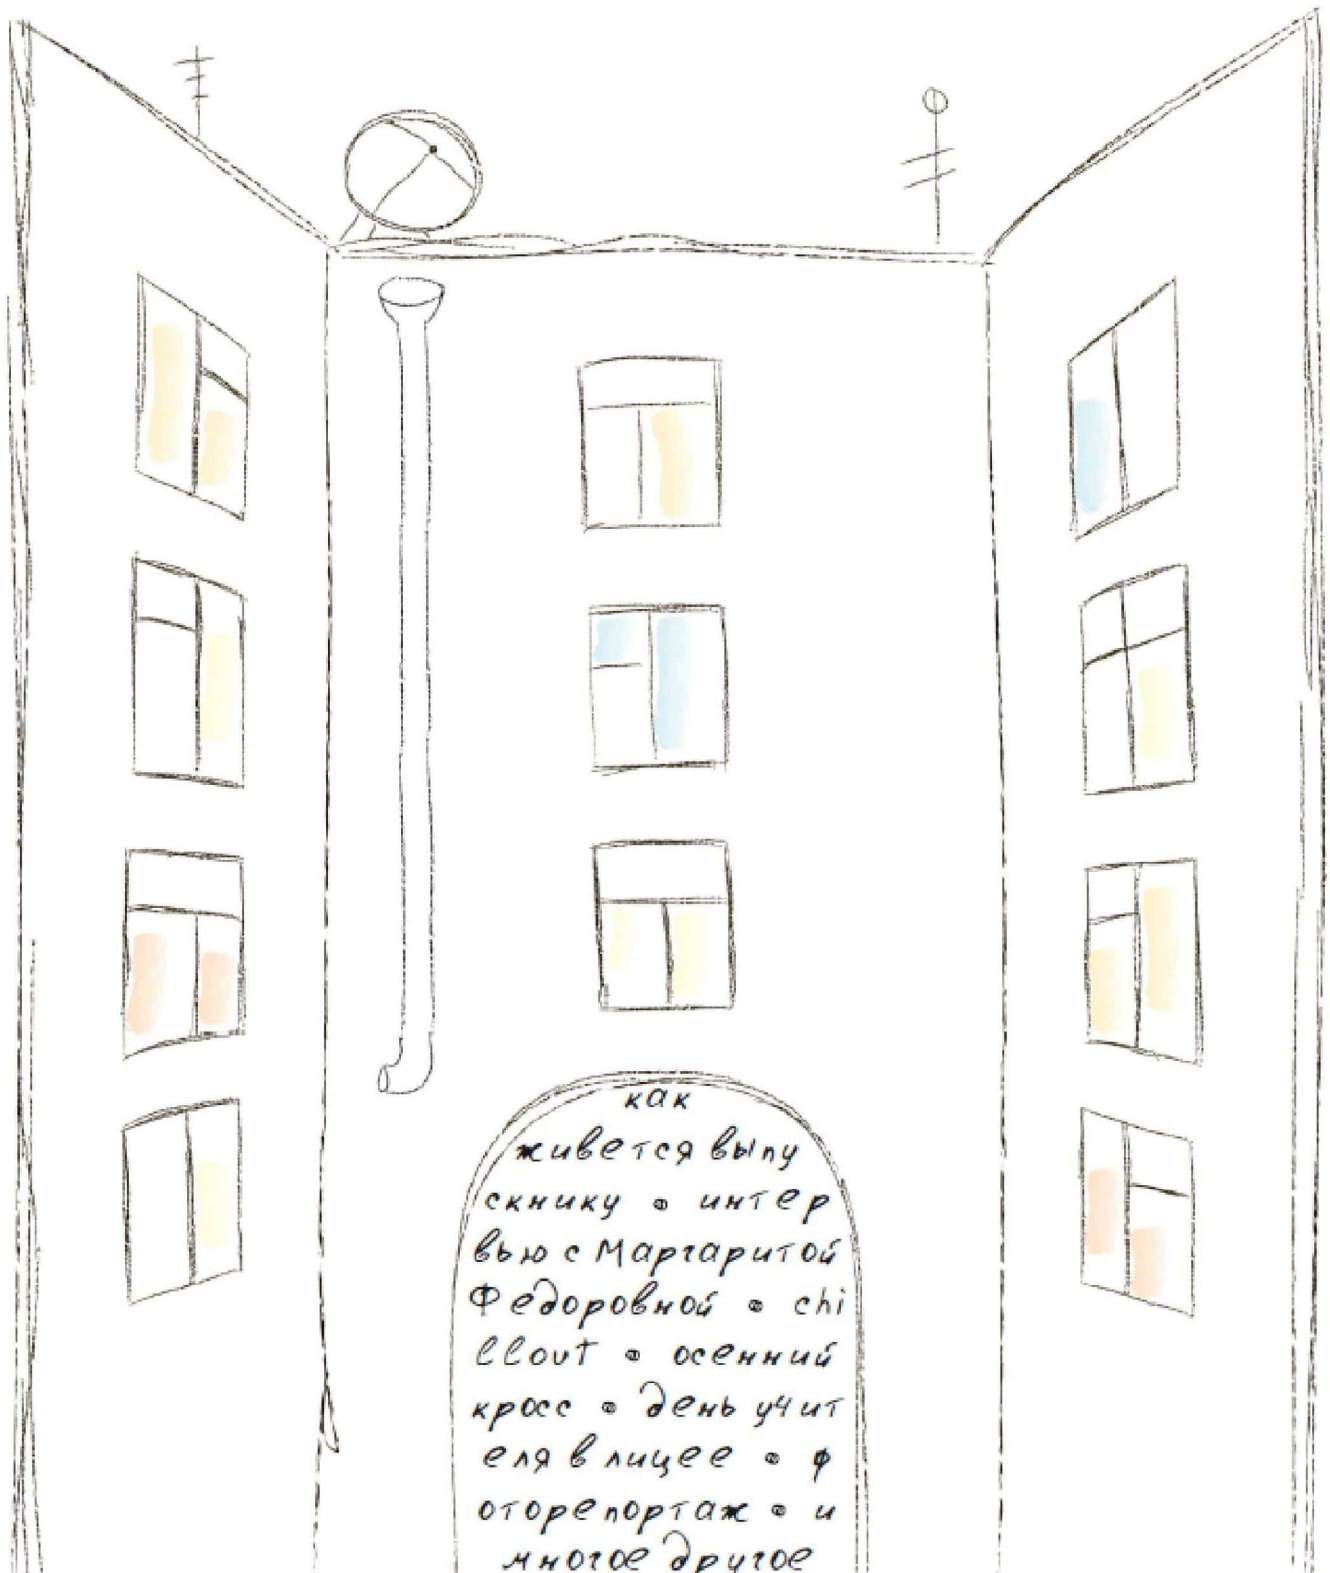 как
живется выпу
скнику • интер
вью с Маргаритой
Федоровной • chi
llout • осенний
кросс • день учит
еля в лицее • ф
оторепортаж • и
многое другое